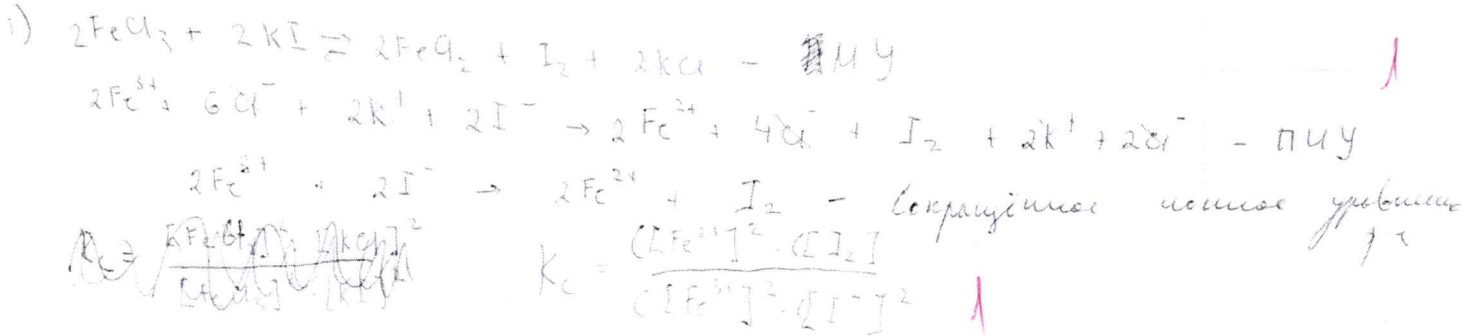 1) 2FeCl₃ + 2KI ⇄ 2FeCl₂ + I₂ + 2KCl - МУ 1
2Fe³⁺ + 6Cl⁻ + 2K⁺ + 2I⁻ → 2Fe²⁺ + 4Cl⁻ + I₂ + 2K⁺ + 2Cl⁻ - ПИУ
2Fe³⁺ + 2I⁻ → 2Fe²⁺ + I₂ - Сокращённое ионное уравнение
K_c = ([Fe²⁺]² · ([I₂]
([Fe³⁺]² · ([I⁻]² 1